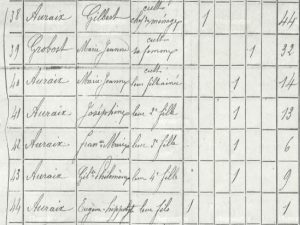 38 Auraix Gilbert cultr chef de ménage 1 44
39 Grobost Marie Jeanne cult sa femme 1 32
40 Auraix Marie Jeanne cult leur fille ainée 1 14
41 Auraix Joséphine leur 2e fille 1 13
42 Auraix Jeane Marie leur 3e fille 1 6
43 Auraix leur 4e fille 1 9
44 Auraix Eugène hippolyte leur fils 1 1